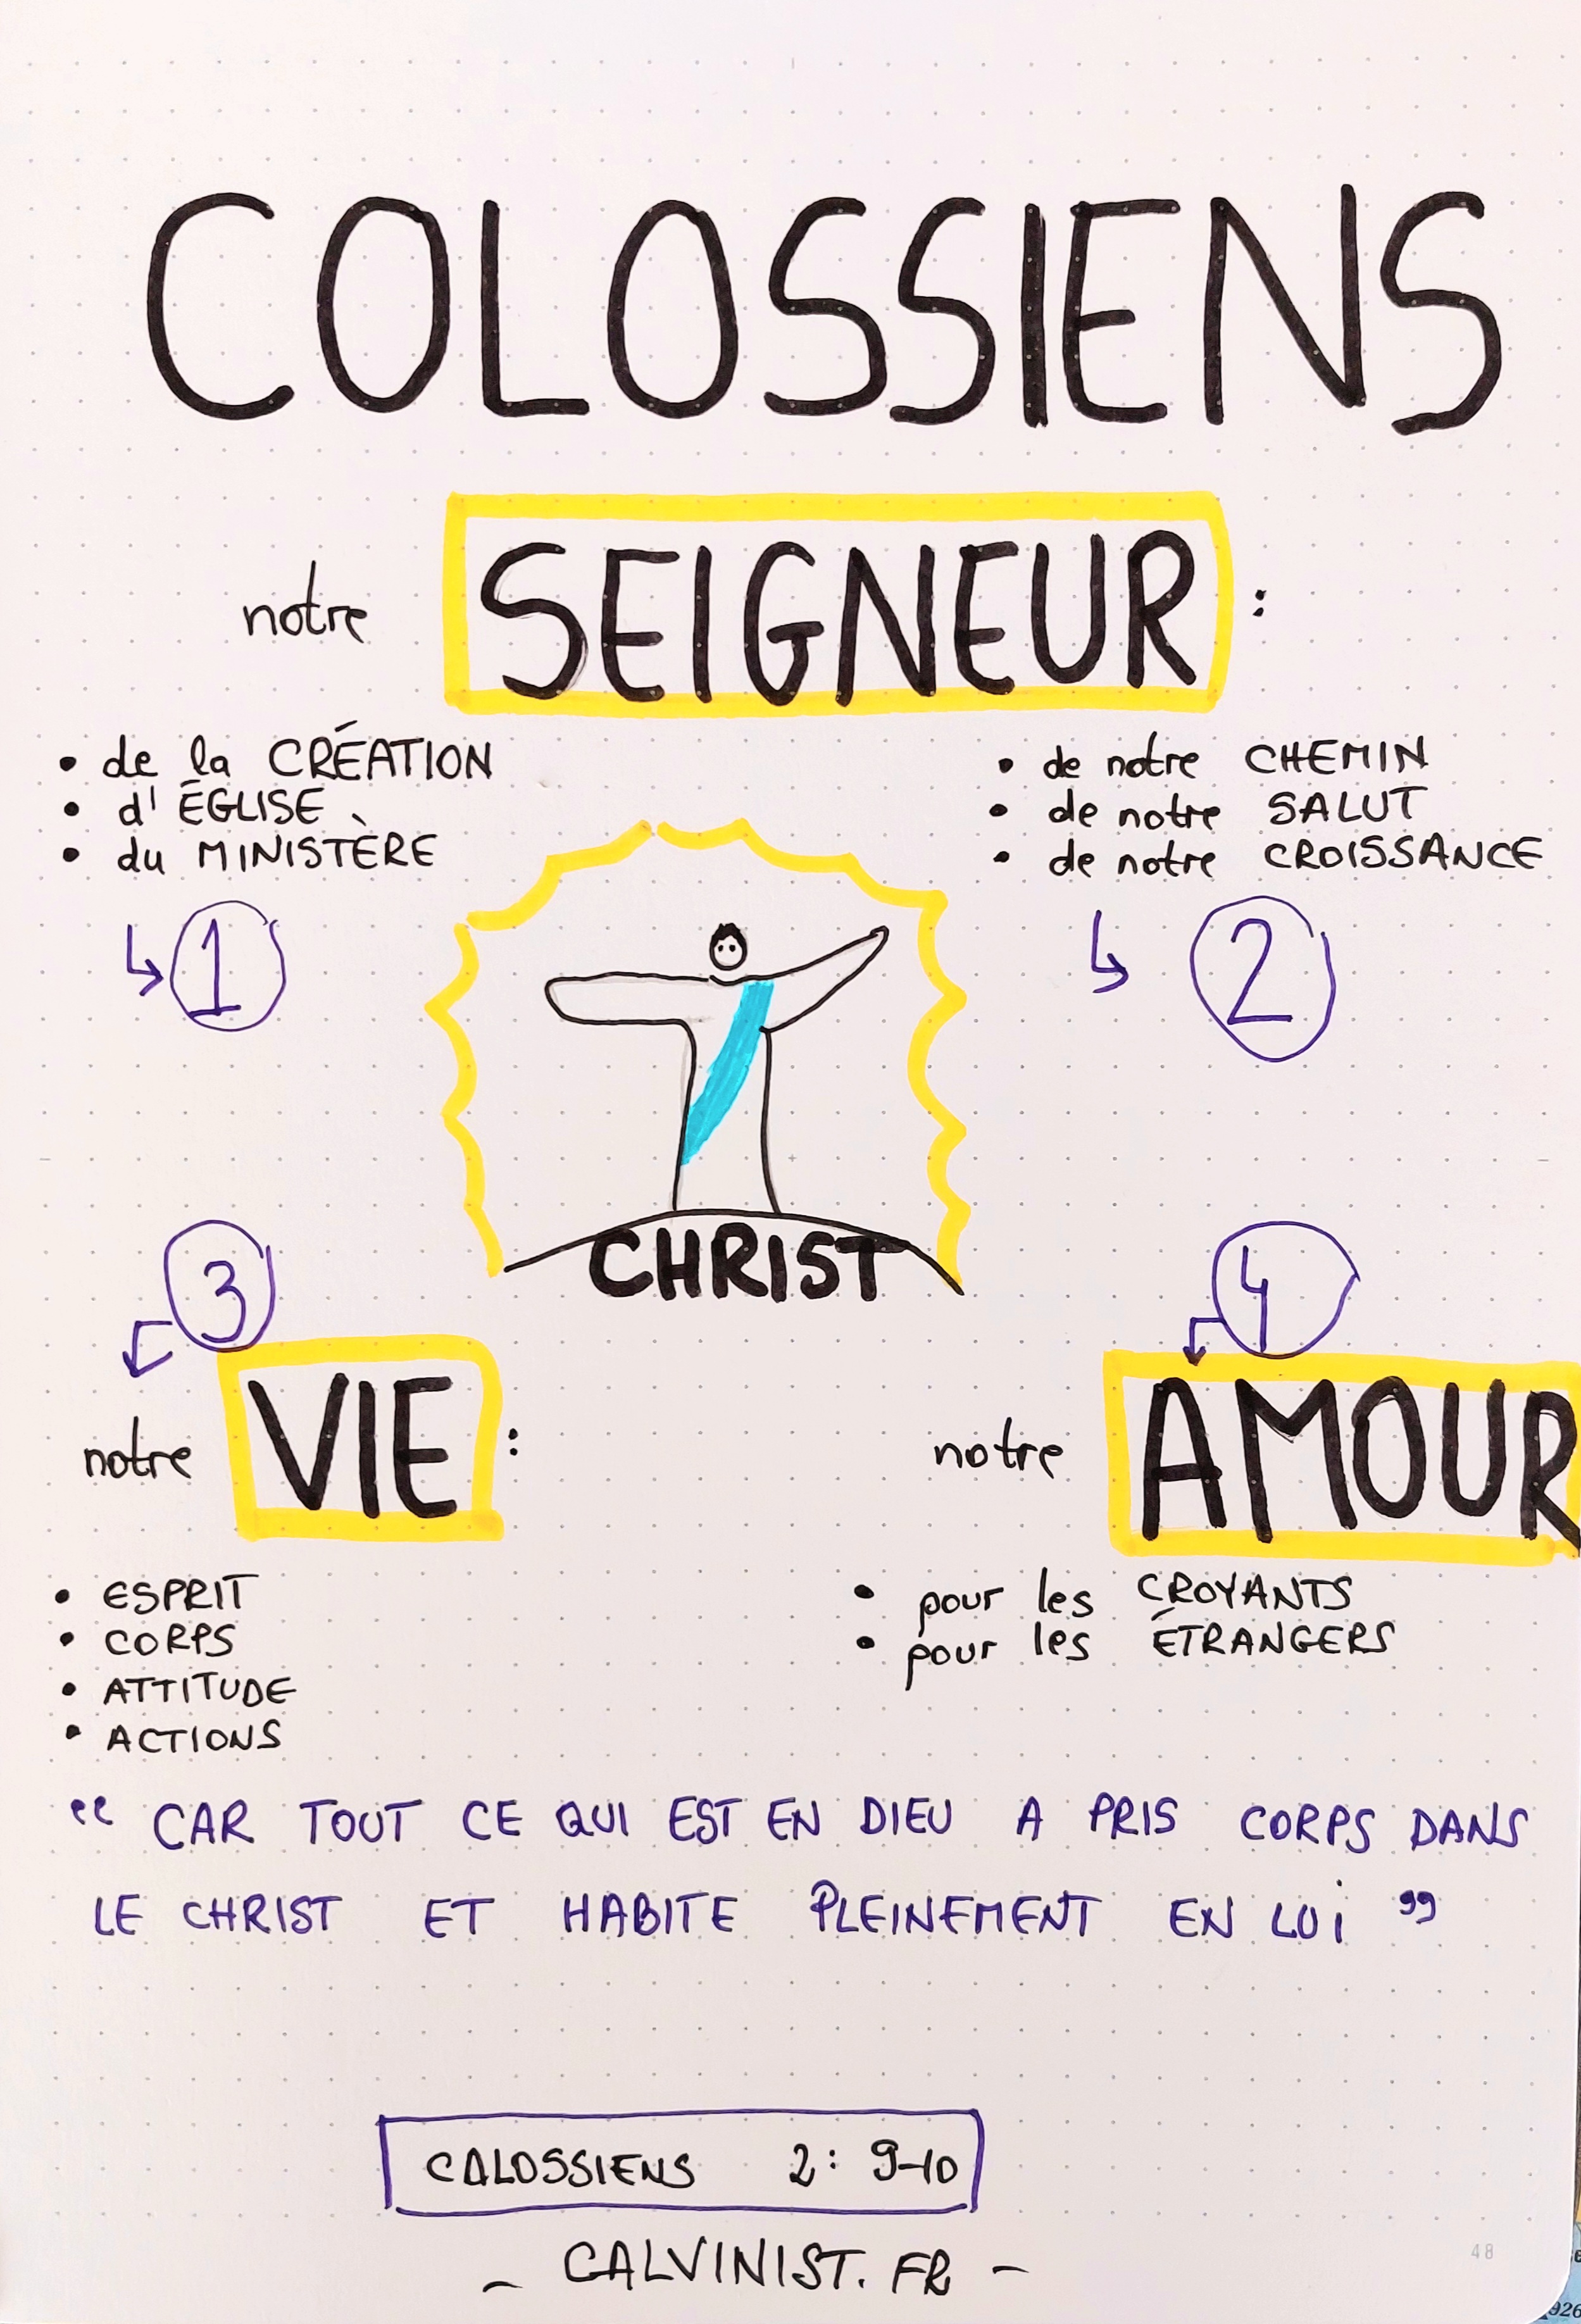 COLOSSIENS
notre SEIGNEUR :
• de la CRÉATION
• d' ÉGLISE
• du MINISTÈRE
↳ 1
• de notre CHEMIN
• de notre SALUT
• de notre CROISSANCE
↳ 2
CHRIST
3
notre VIE :
• ESPRIT
• CORPS
• ATTITUDE
• ACTIONS
4
notre AMOUR
• pour les CROYANTS
• pour les ÉTRANGERS
“ CAR TOUT CE QUI EST EN DIEU A PRIS CORPS DANS
LE CHRIST ET HABITE PLEINEMENT EN LUi ”
CALOSSIENS 2: 9-10
- CALVINIST. FR -
48